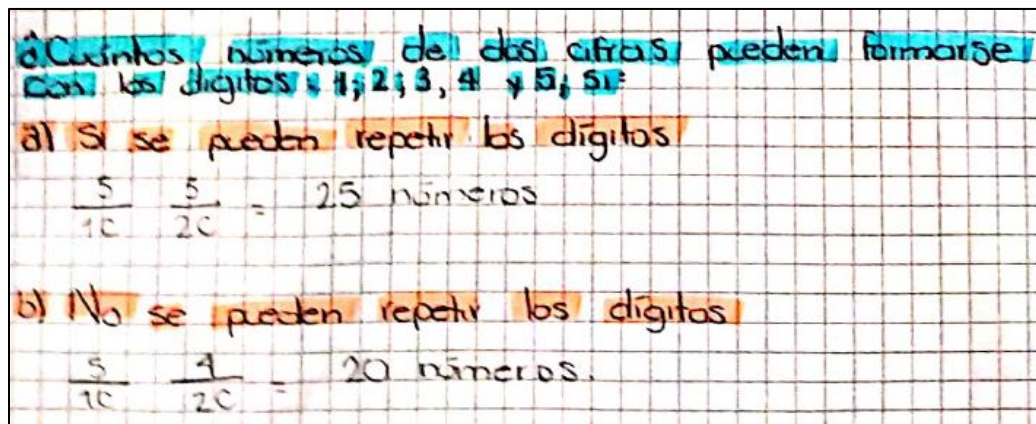 ¿Cuántos números de dos cifras pueden formarse
con los dígitos: 1; 2; 3, 4 y 5; si:
a) Si se pueden repetir los dígitos
5/1C 5/2C = 25 números
b) No se pueden repetir los dígitos
5/1C 4/2C = 20 números.